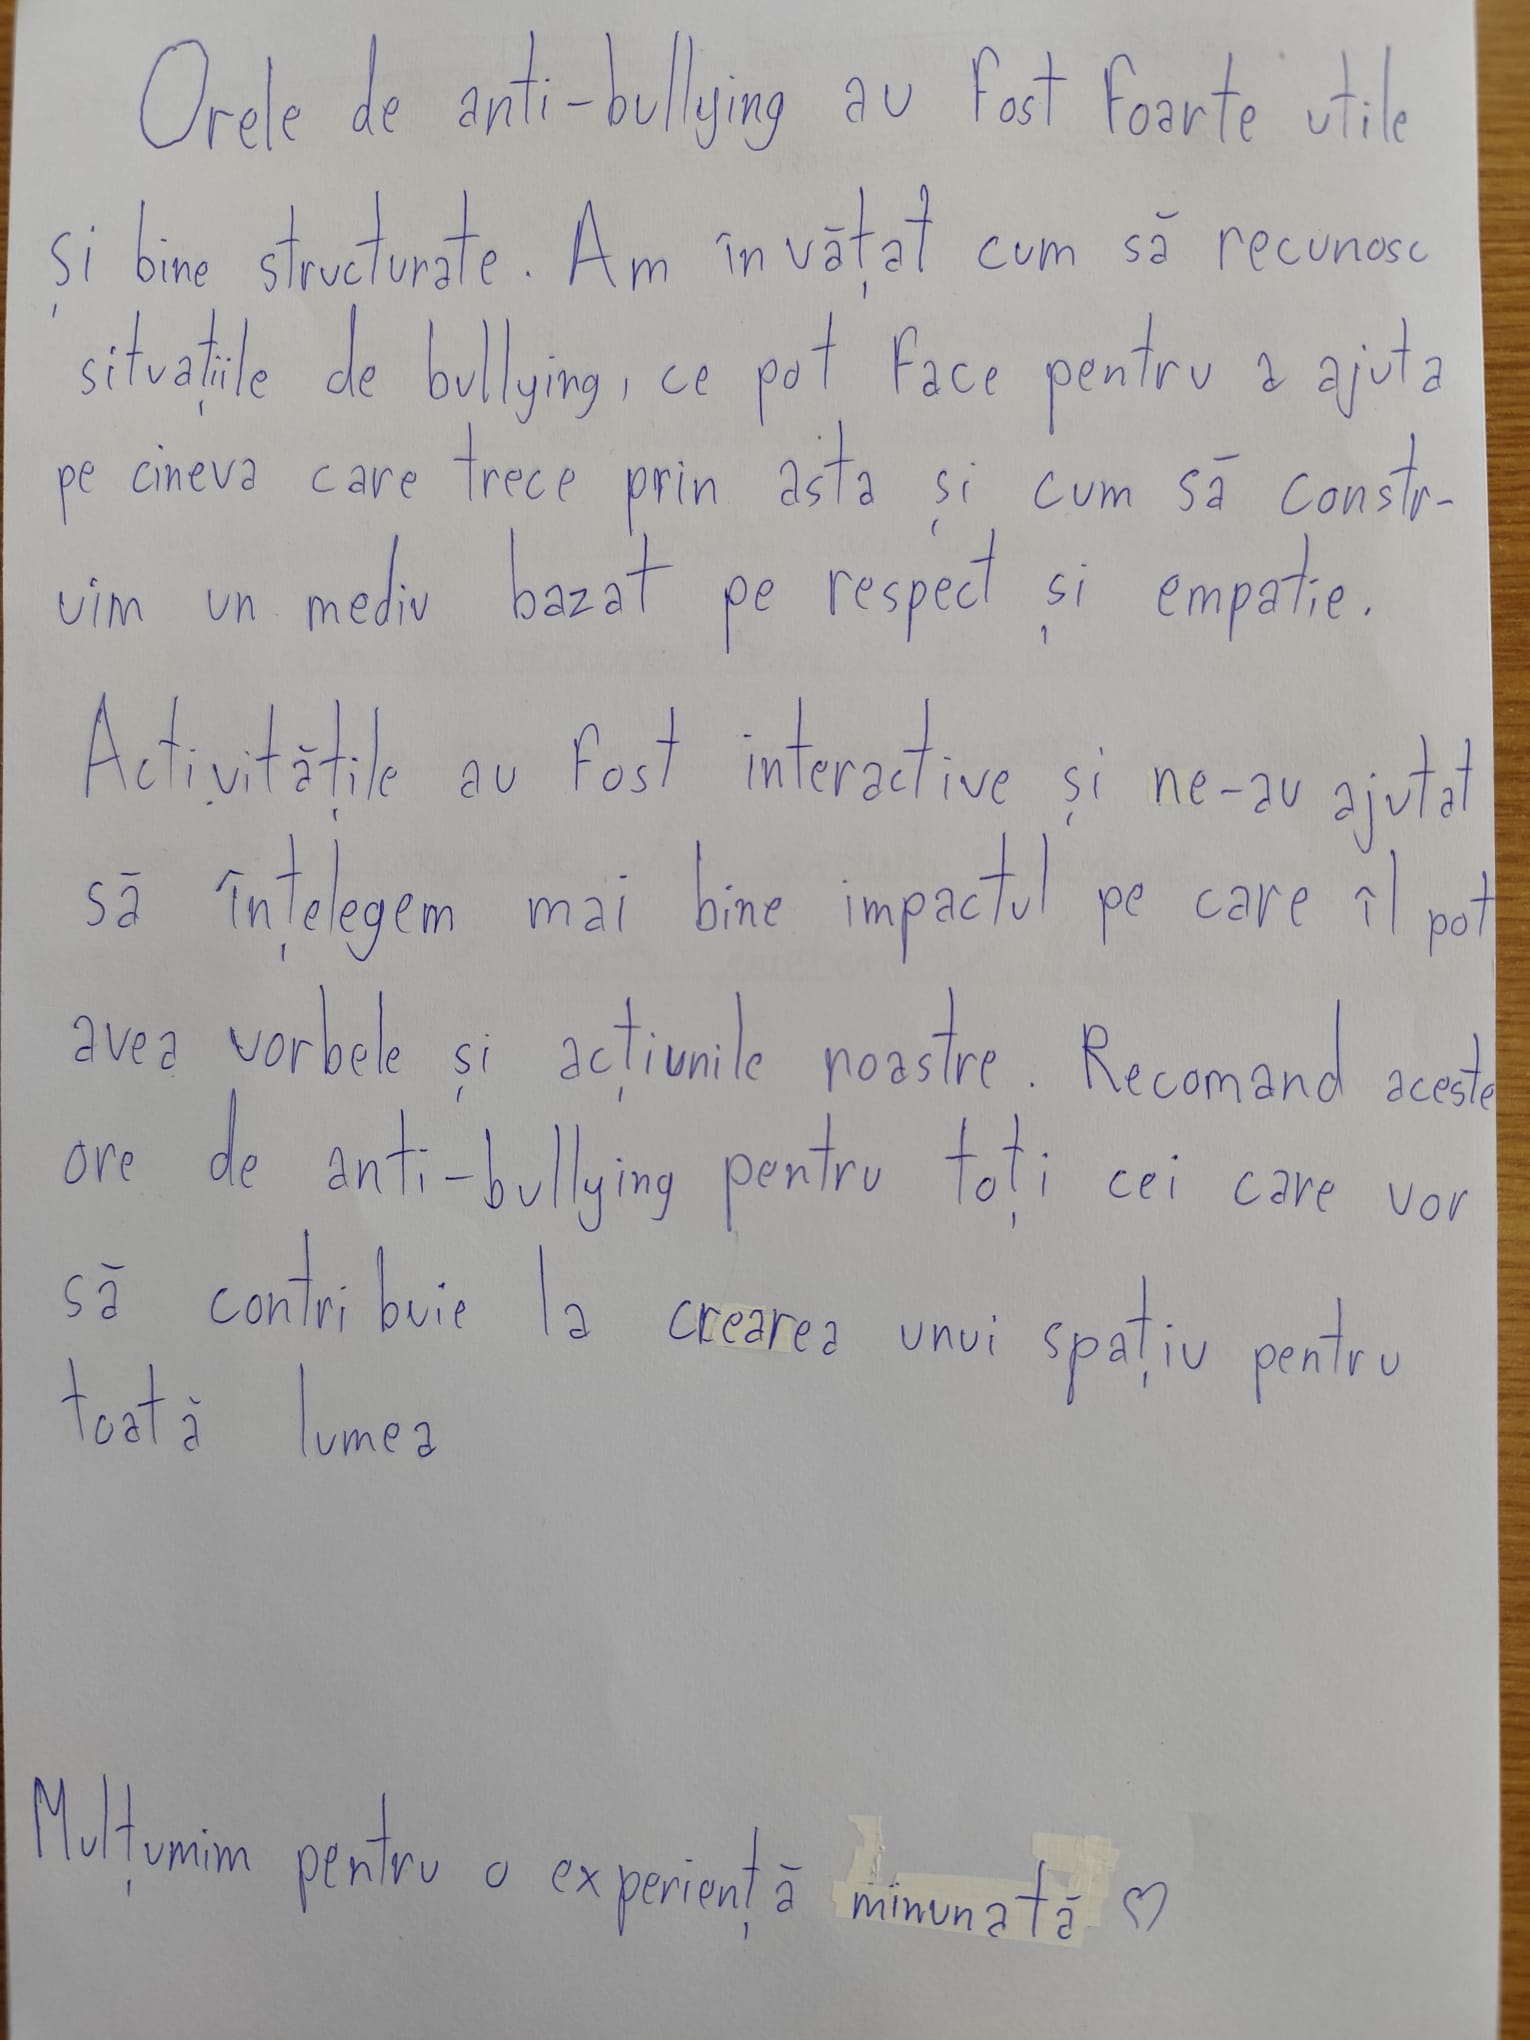 Orele de anti-bullying au fost foarte utile
și bine structurate. Am învățat cum să recunosc
situațiile de bullying, ce pot face pentru a ajuta
pe cineva care trece prin asta și cum să constr-
uim un mediu bazat pe respect și empatie.
Activitățile au fost interactive și ne-au ajutat
să înțelegem mai bine impactul pe care îl pot
avea vorbele și acțiunile noastre. Recomand aceste
ore de anti-bullying pentru toți cei care vor
să contribuie la crearea unui spațiu pentru
toată lumea
Mulțumim pentru o experiență minunată ♡